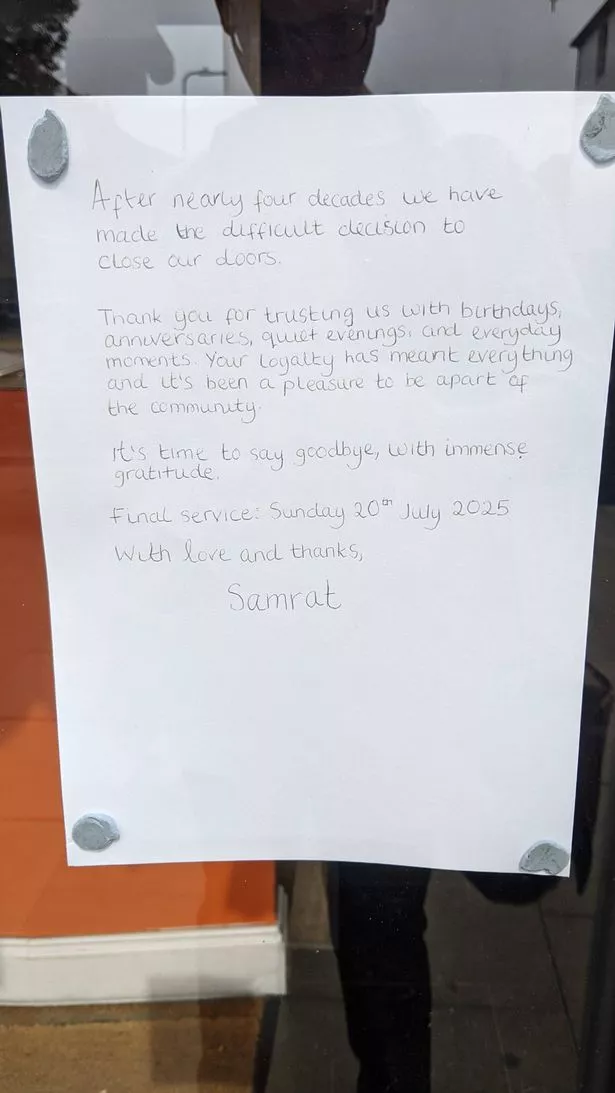 After nearly four decades we have
made the difficult decision to
close our doors.
Thank you for trusting us with birthdays,
anniversaries, quiet evenings, and everyday
moments. Your loyalty has meant everything
and it's been a pleasure to be apart of
the community.
It's time to say goodbye, with immense
gratitude.
Final service: Sunday 20th July 2025
With love and thanks,
Samrat